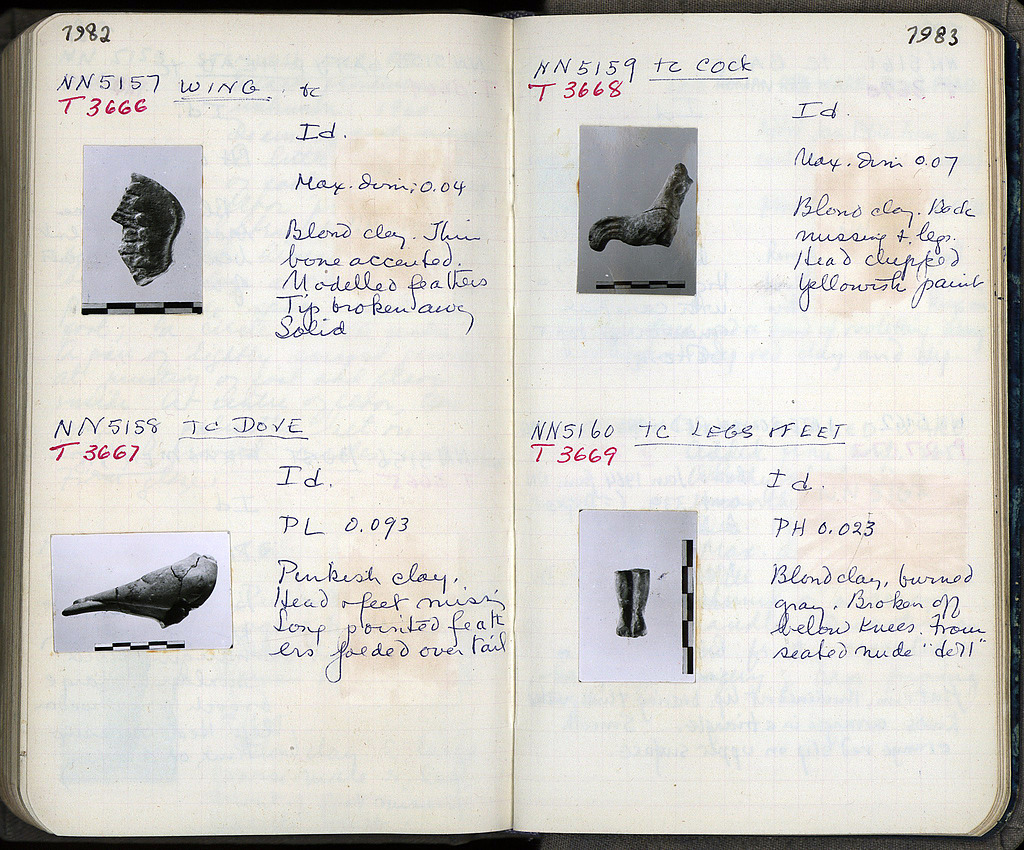 1982
NN5157 WING. tc
T 3666
Id.
Max. dim; 0.04
Blond clay. Thin
bone accented.
Modelled feathers
Tip broken away
Solid
NN5158 TC DOVE
T 3667
Id.
PL 0.093
Pinkish clay.
Head & feet missing
Long pointed feath
ers folded over tail
1983
NN5159 tc COCK
T 3668
Id.
Max. dim 0.07
Blond clay. Back
missing & legs.
Head chipped
Yellowish paint
NN5160 TC LEGS & FEET
T 3669
Id.
PH 0.023
Blond clay, burned
gray. Broken off
below knees. From
seated nude "doll"